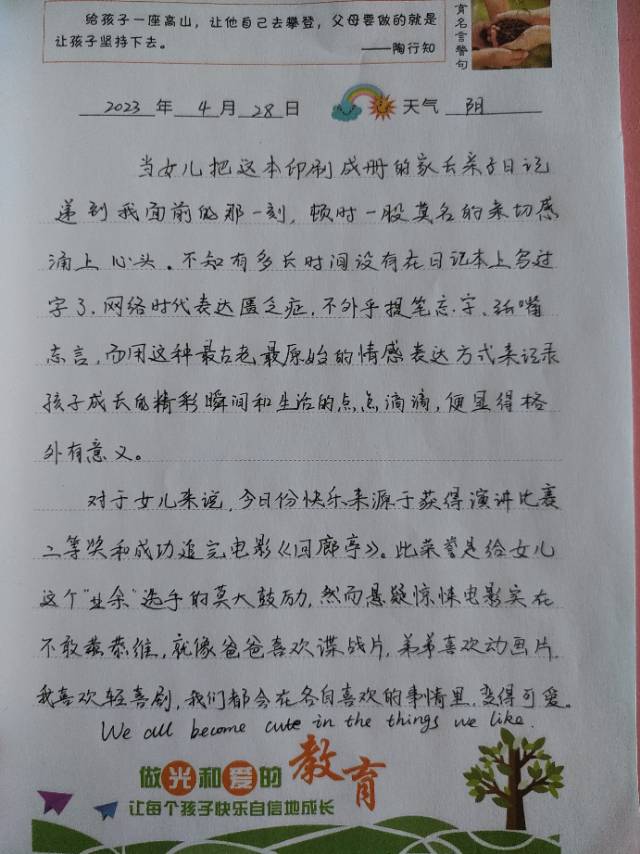 给孩子一座高山，让他自己去攀登，父母要做的就是
让孩子坚持下去。
——陶行知
育名言警句
2023 年 4 月 28 日 天气 阴
当女儿把这本印刷成册的家长亲子日记
递到我面前的那一刻，顿时一股莫名的亲切感
涌上心头。不知有多长时间没有在日记本上写过
字了，网络时代表达匮乏症，不外乎提笔忘字、张嘴
忘言，而用这种最古老最原始的情感表达方式来记录
孩子成长的精彩瞬间和生活的点点滴滴，便显得格
外有意义。
对于女儿来说，今日份快乐来源于获得演讲比赛
二等奖和成功追完电影《回廊亭》。此荣誉是给女儿
这个"业余"选手的莫大鼓励，然而悬疑惊悚电影实在
不敢恭维，就像爸爸喜欢谍战片，弟弟喜欢动画片，
我喜欢轻喜剧，我们都会在各自喜欢的事情里，变得可爱。
We all become cute in the things we like.
做光和爱的教育
让每个孩子快乐自信地成长